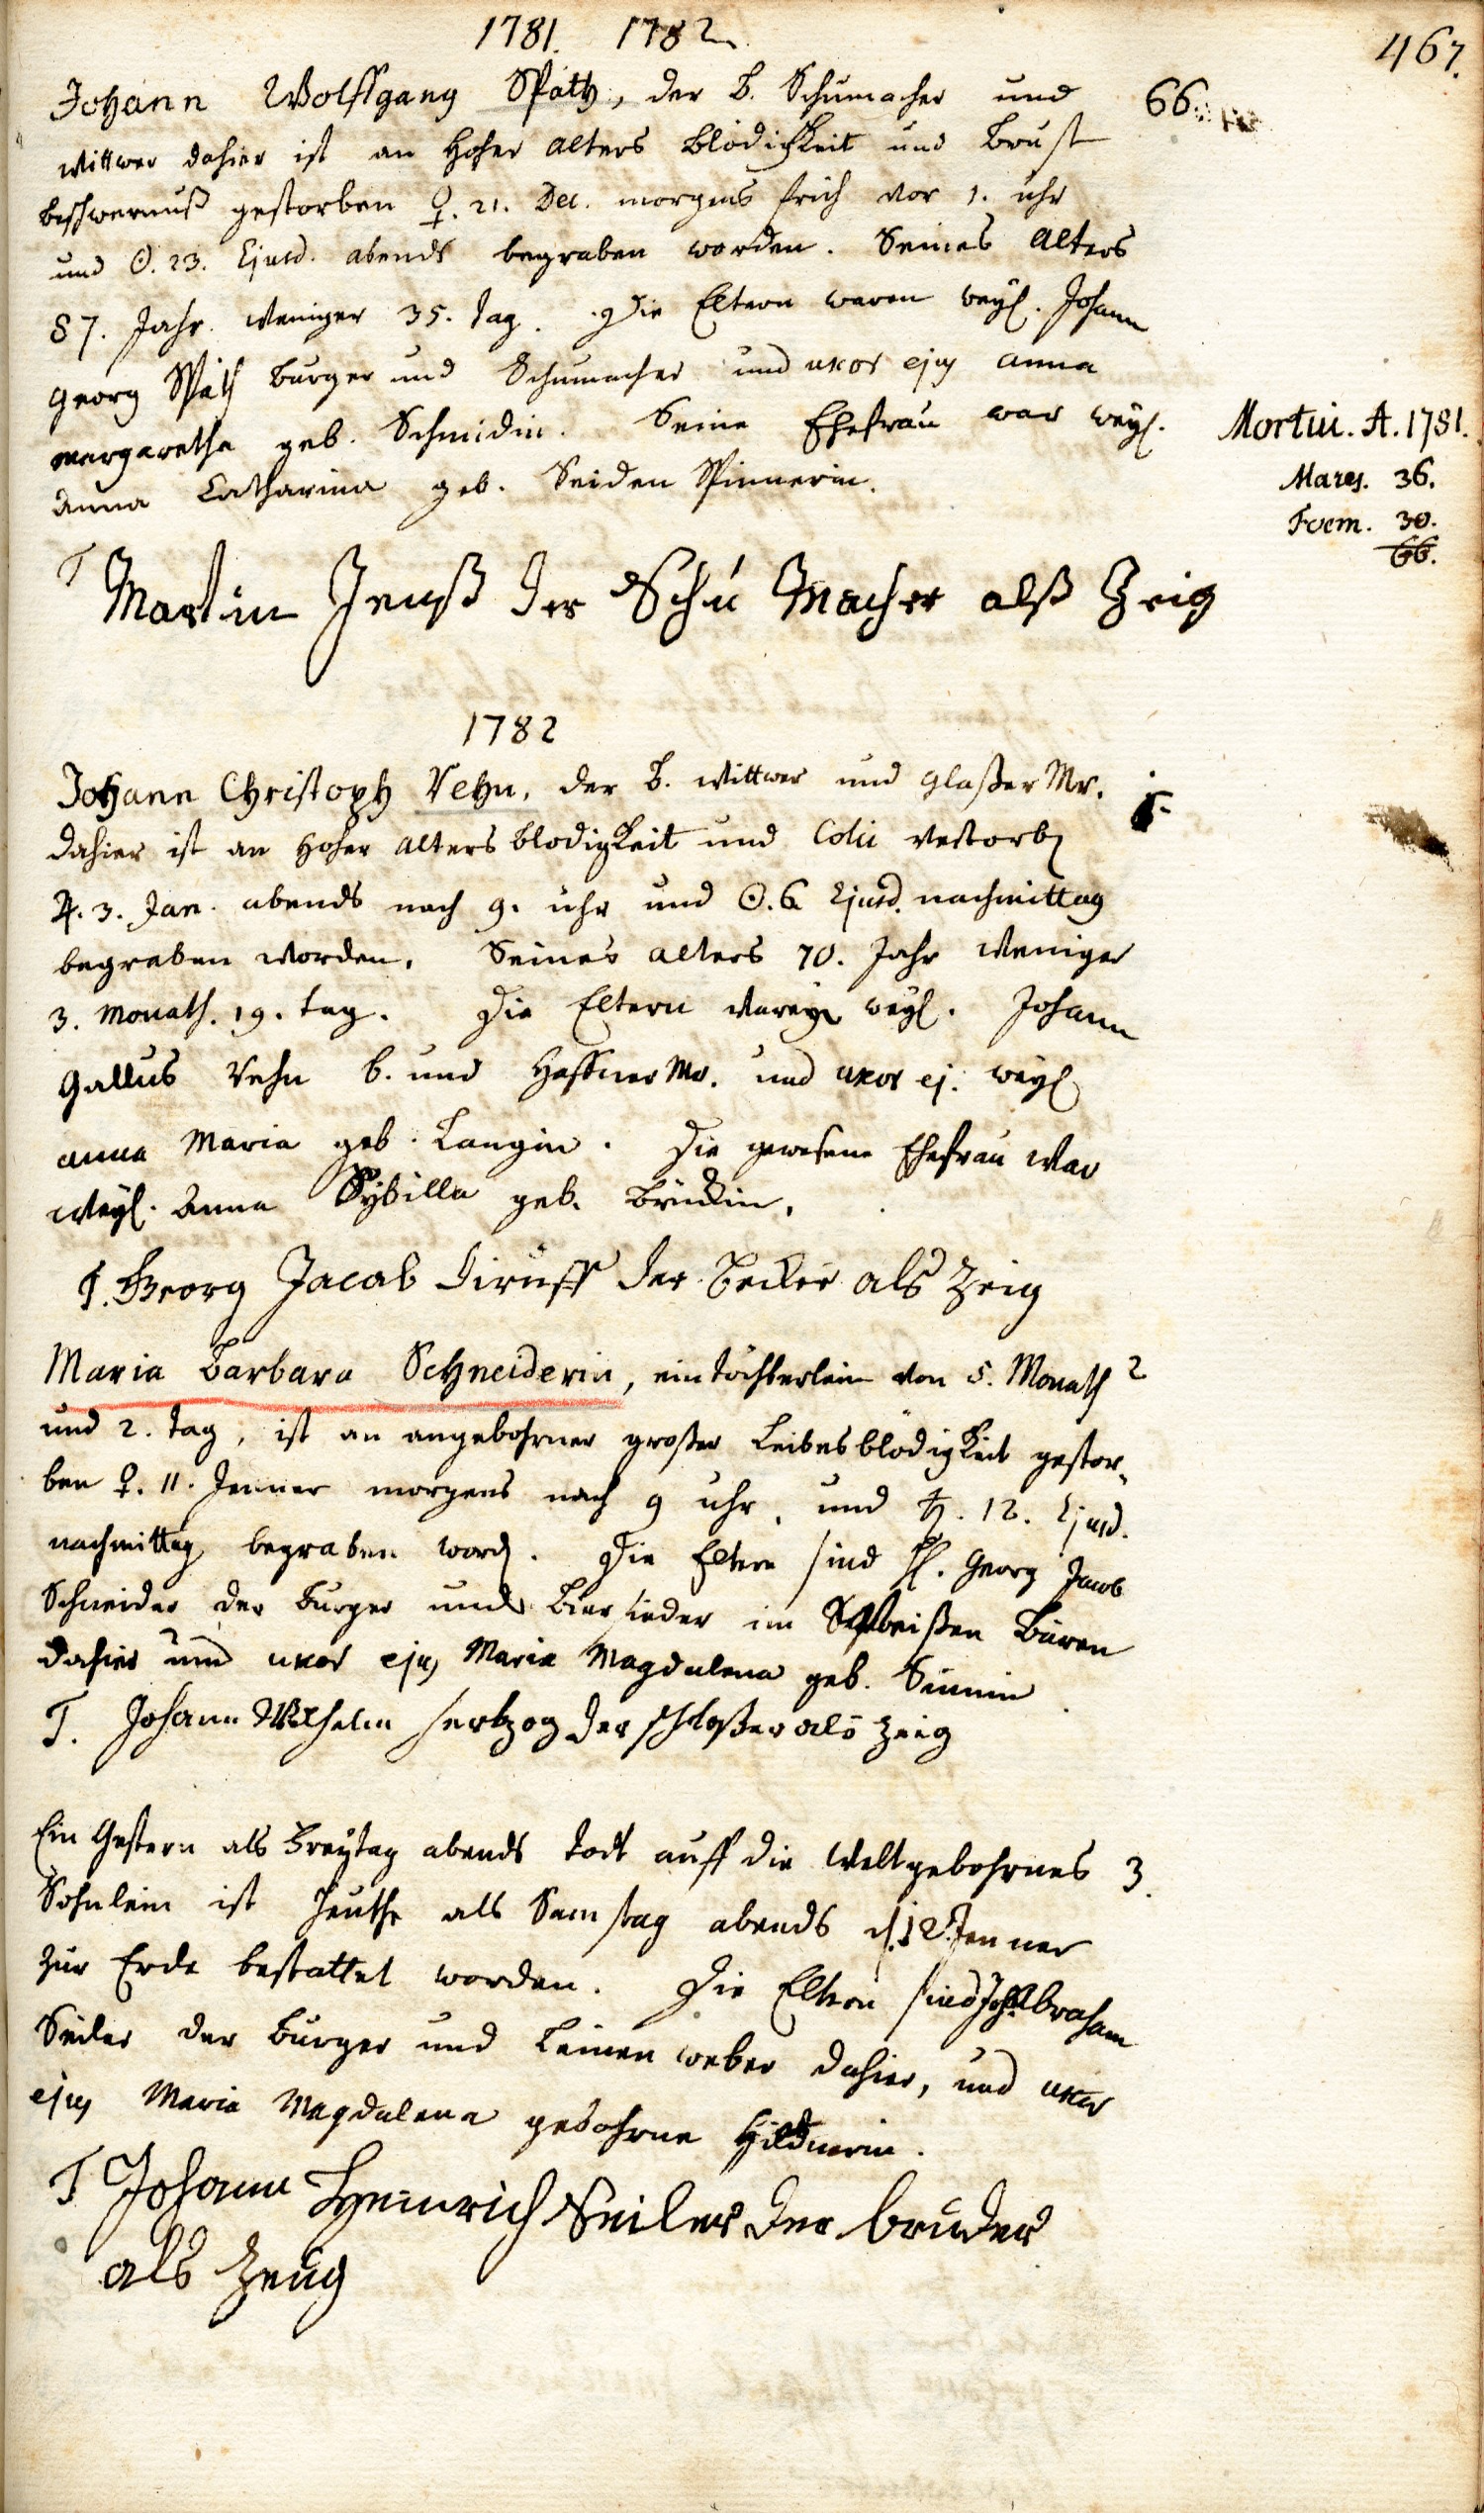 1781. 1782.
467.
Johann Wolffgang Späth, der b. Schumacher und 66.
wittwer dahier ist an Hoher Alters blödichkeit und Brust
beschwernuß gestorben ♀. 21. Dec. morgens frich vor 1. uhr
und ☉. 23. Ejusd. abends begraben worden. Seines Alters
87. Jahr weniger 35. tag. Die Eltern waren weyl. Johann
Georg Späth burger und Schumacher und uxor ejus Anna
margaretha geb. Schmidin. Seine Ehefrau war weyl.
Anna Catharina geb. Seiden Spinnerin.
Mortui. A. 1781.
Mares. 36.
Foem. 30.
66.
T Martin der Schu Macher alß Zeig
1782
Johann Christoph Vehn, der b. wittwer und glaßer Mr. 1.
dahier ist an Hoher alters blodigkeit und Colic verstorben
♃. 3. Jan. abends nach 9. uhr und ☉. 6 Ejusd. nachmittag
begraben worden. Seines alters 70. Jahr weniger
3. Monath. 19. tag. Die Eltern waren weyl. Johann
Gallus Vehn b. und Haffner Mr. und uxor ej. weyl
anna Maria geb. Langin. Die gewesene Ehefrau war
weyl. Anna Sybilla geb.
T. Georg Jacob der Becker als Zeig
Maria Barbara Schneiderin, ein töchterlein von 5. Monath 2
und 2. tag, ist an angebohrner großer Leibesblödigkeit gestor-
ben ♀. 11. Jenner morgens nach 9 uhr, und ♄. 12. Ejusd.
nachmittag begraben word. Die Eltern sind H. Georg Jacob
Schneider der burger und Biersieder im weißen Bären
dahier und uxor ejus Maria Magdalena geb.
T. Johann Wilhelm Hertzog der schloßer als Zeig
Ein Gestern als Freytag abends todt auff die Welt gebohrnes 3.
Söhnlein ist heuthe als Samstag abends d. 12. Jenner
zur Erde bestattet worden. Die Eltern sind Joh. Abraham
Seiler der burger und Leinen weber dahier, und uxor
ejus Maria Magdalena gebohrne Hildnerin.
T Johann Heinrich Seiler der bruder
als Zeug